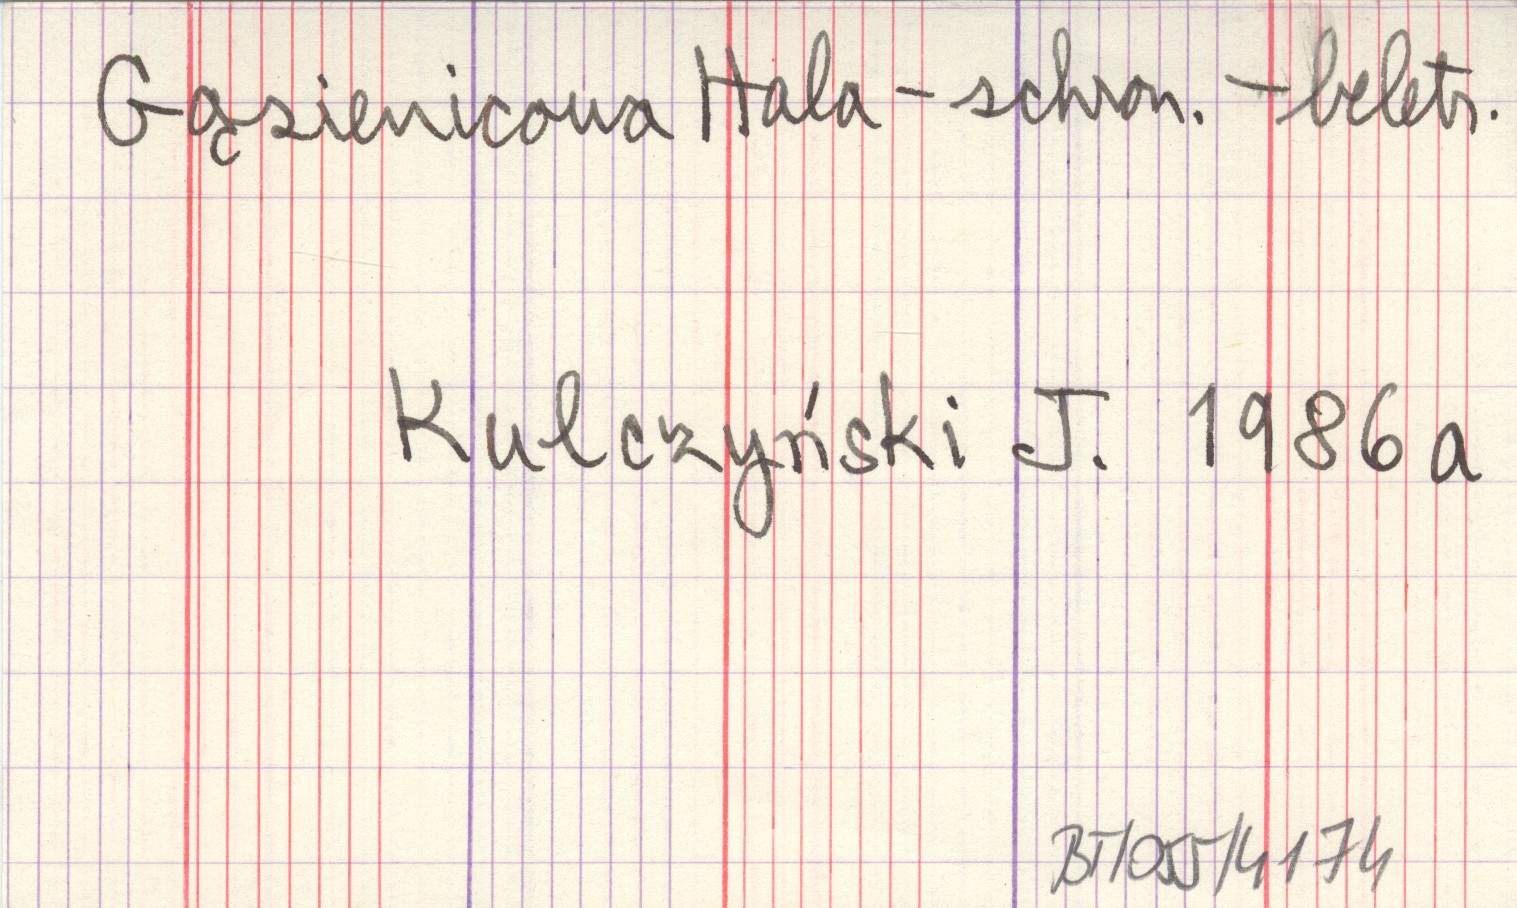 Gąsienicowa Hala – schron. – beletr.
Kulczyński J. 1986 a
BT/055/4174